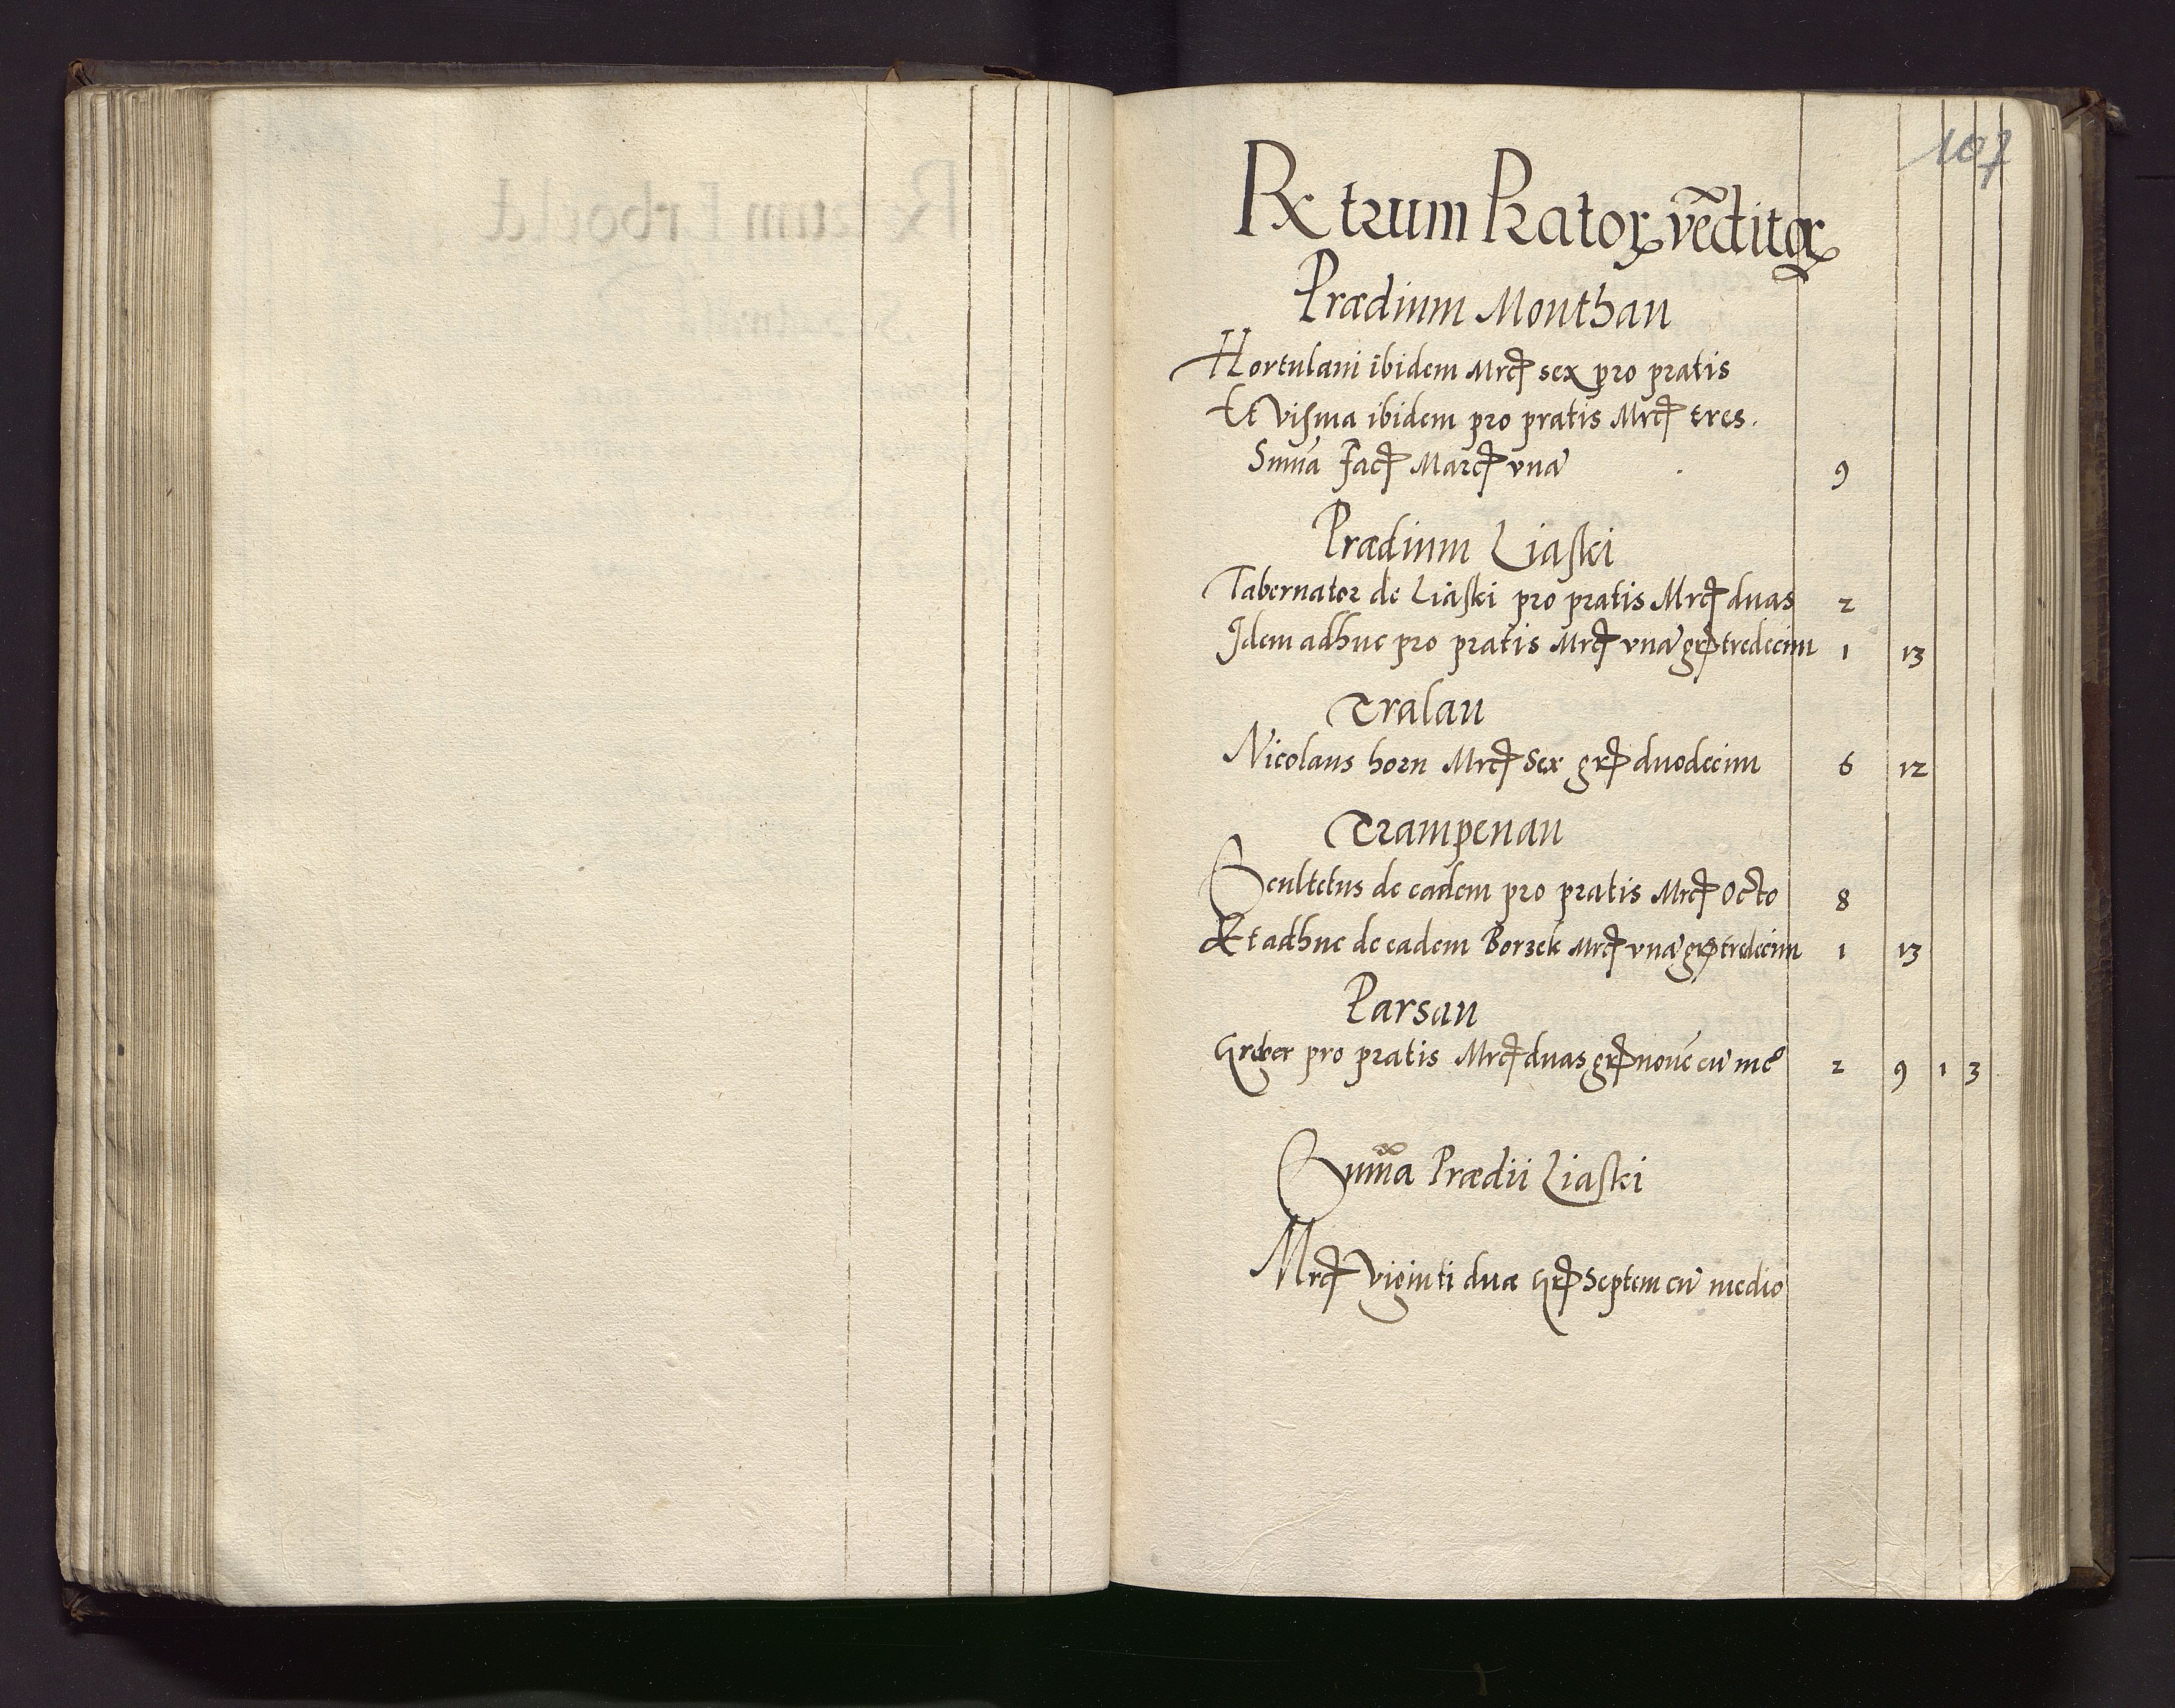 107
Rx trum Pratoꝝ vẽditoꝝ
Prædium Monthau
Hortulani ibidem Mrcꝭ sex pro pratis
Et visma ibidem pro pratis Mrcꝭ tres.
Sum̃a facꝭ Marcꝭ vnã 9
Prædium Liaski
Tabernator de Liaski pro pratis Mrcꝭ duas 2
Idem adhuc pro pratis Mrcꝭ vnã grꝭ tredecim 1 13
Tralau
Nicolaus horn Mrcꝭ Sex grꝭ duodecim 6 12
Trampenau
Scultetus de eadem pro pratis Mrcꝭ Octo 8
Et adhuc de eadem Borzek Mrcꝭ vnã grꝭ tredecim 1 13
Parsau
Greber pro pratis Mrcꝭ duas grꝭ nouẽ cũ mº 2 9 1 3
Sum̃a Prædii Liaski
Mrcꝭ Viginti duæ Grꝭ Septem cũ medio